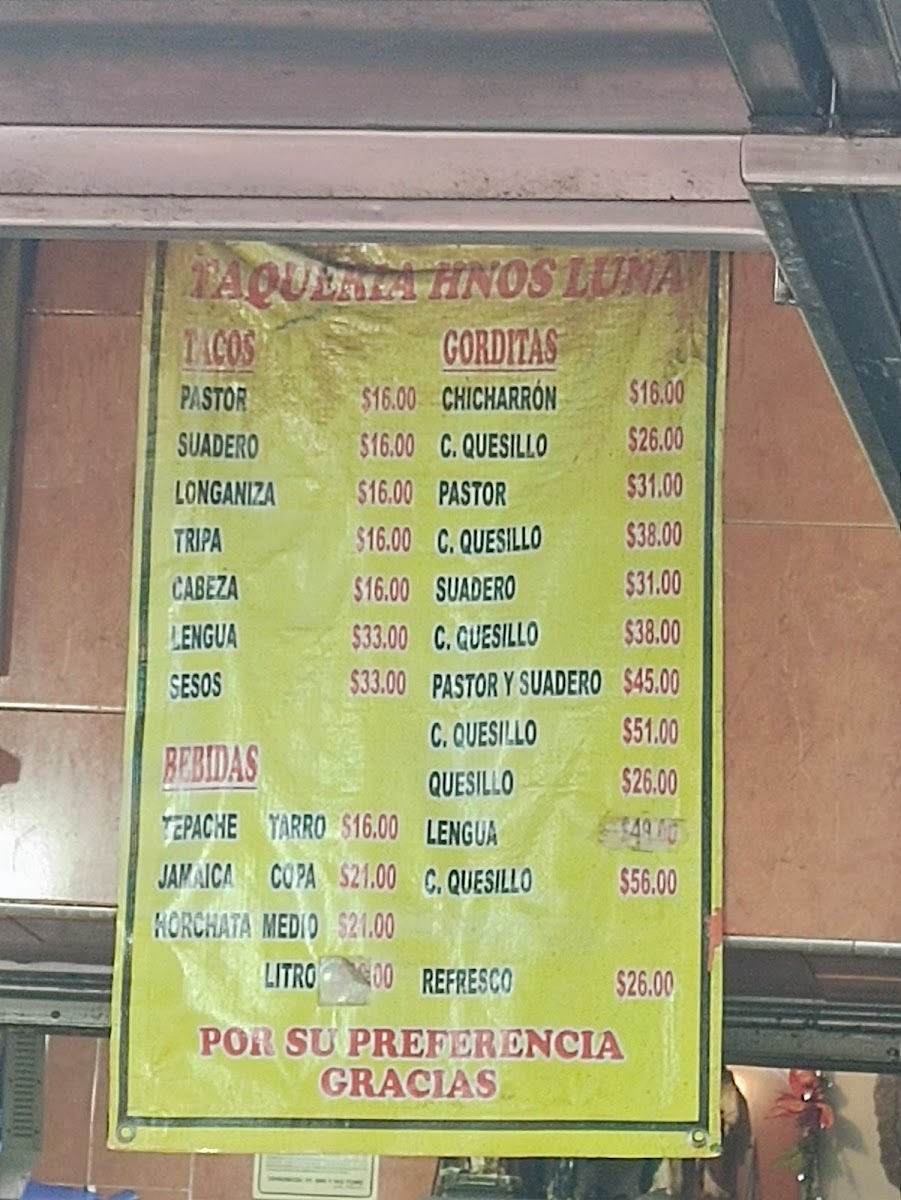 TAQUERIA HNOS LUNA
TACOS
PASTOR $16.00
SUADERO $16.00
LONGANIZA $16.00
TRIPA $16.00
CABEZA $16.00
LENGUA $33.00
SESOS $33.00
BEBIDAS
TEPACHE TARRO $16.00
JAMAICA COPA $21.00
HORCHATA MEDIO $21.00
LITRO
GORDITAS
CHICHARRÓN $16.00
C. QUESILLO $26.00
PASTOR $31.00
C. QUESILLO $38.00
SUADERO $31.00
C. QUESILLO $38.00
PASTOR Y SUADERO $45.00
C. QUESILLO $51.00
QUESILLO $26.00
LENGUA $49.00
C. QUESILLO $56.00
REFRESCO $26.00
POR SU PREFERENCIA
GRACIAS